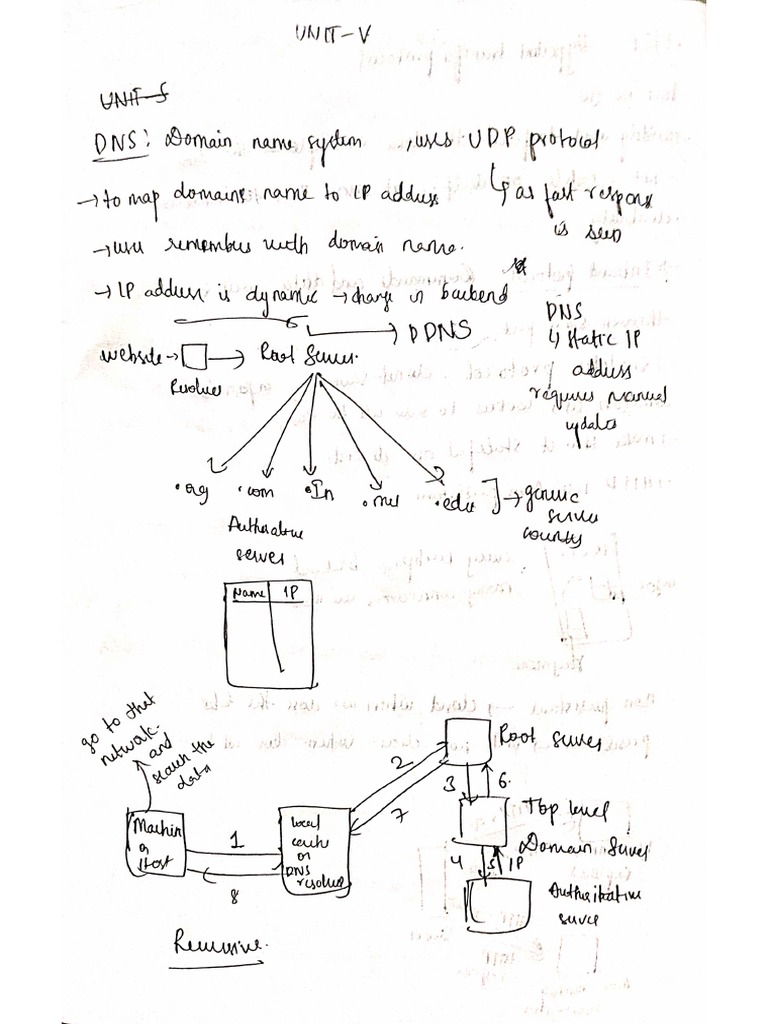 UNIT-V
UNIT-5
DNS: Domain name system , uses UDP protocol
→ to map domains name to IP address
↳ as fast respons
is seen
→ user remembers with domain name.
→ IP address is dynamic → change in backend
→ DDNS
DNS
↳ static IP
address
requires manual
updates
website → → Root Server.
Resolver
.org .com .In .net .edu → generic
server
country
Authorative
server
Name IP
go to that
network
and
search the
data
Root server
2
7
3 6.
Top level
Domain Server
4 5 IP
Authoritative
server
Machin
or
Host
1
8
local
cache
or
DNS
resolver
Recursive.